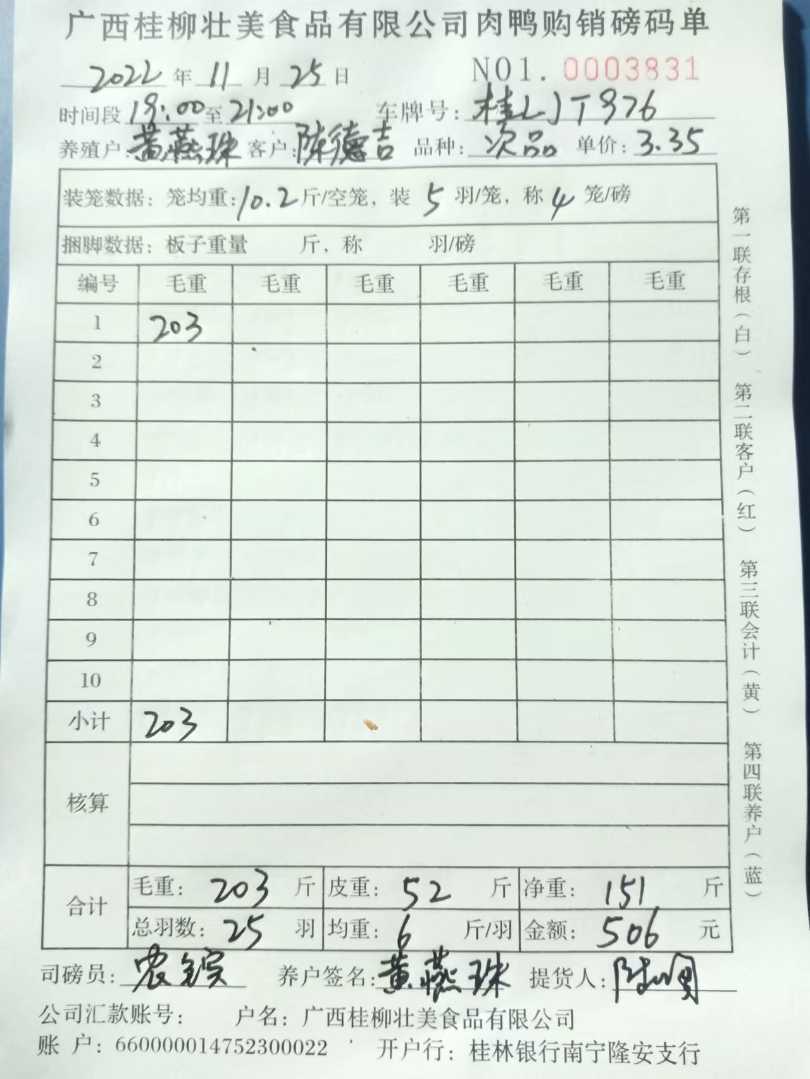 广西桂柳壮美食品有限公司肉鸭购销磅码单
2022 年 11 月 25 日 NO1. 0003831
时间段 19:00 至 21:00 车牌号: 桂LJT976
养殖户: 黄燕珠 客户: 陈德吉 品种: 次品 单价: 3.35
装笼数据: 笼均重: 10.2 斤/空笼, 装 5 羽/笼, 称 4 笼/磅
捆脚数据: 板子重量 斤, 称 羽/磅
编号 毛重 毛重 毛重 毛重 毛重 毛重
1 203
2
3
4
5
6
7
8
9
10
小计 203
核算
合计 毛重: 203 斤 皮重: 52 斤 净重: 151 斤
总羽数: 25 羽 均重: 6 斤/羽 金额: 506 元
司磅员: 农 养户签名: 黄燕珠 提货人: 陈
公司汇款账号: 户名: 广西桂柳壮美食品有限公司
账 户: 660000014752300022 开户行: 桂林银行南宁隆安支行
第一联存根(白) 第二联客户(红) 第三联会计(黄) 第四联养户(蓝)